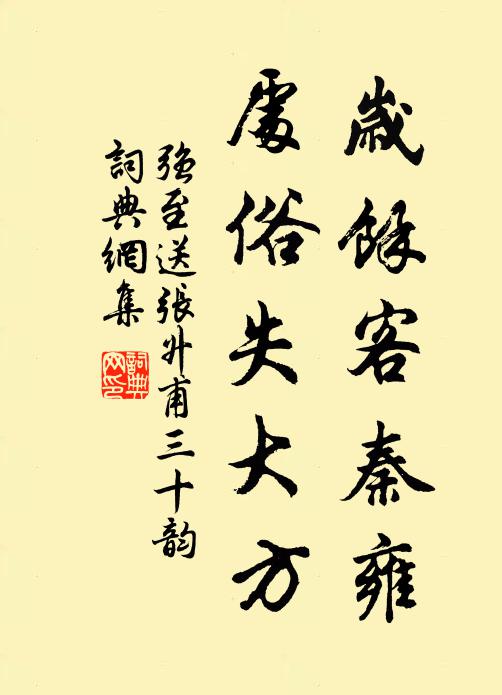 歲餘客秦雍
處俗失大方
強至送張升甫三十韵
詞典網集
詞典網印